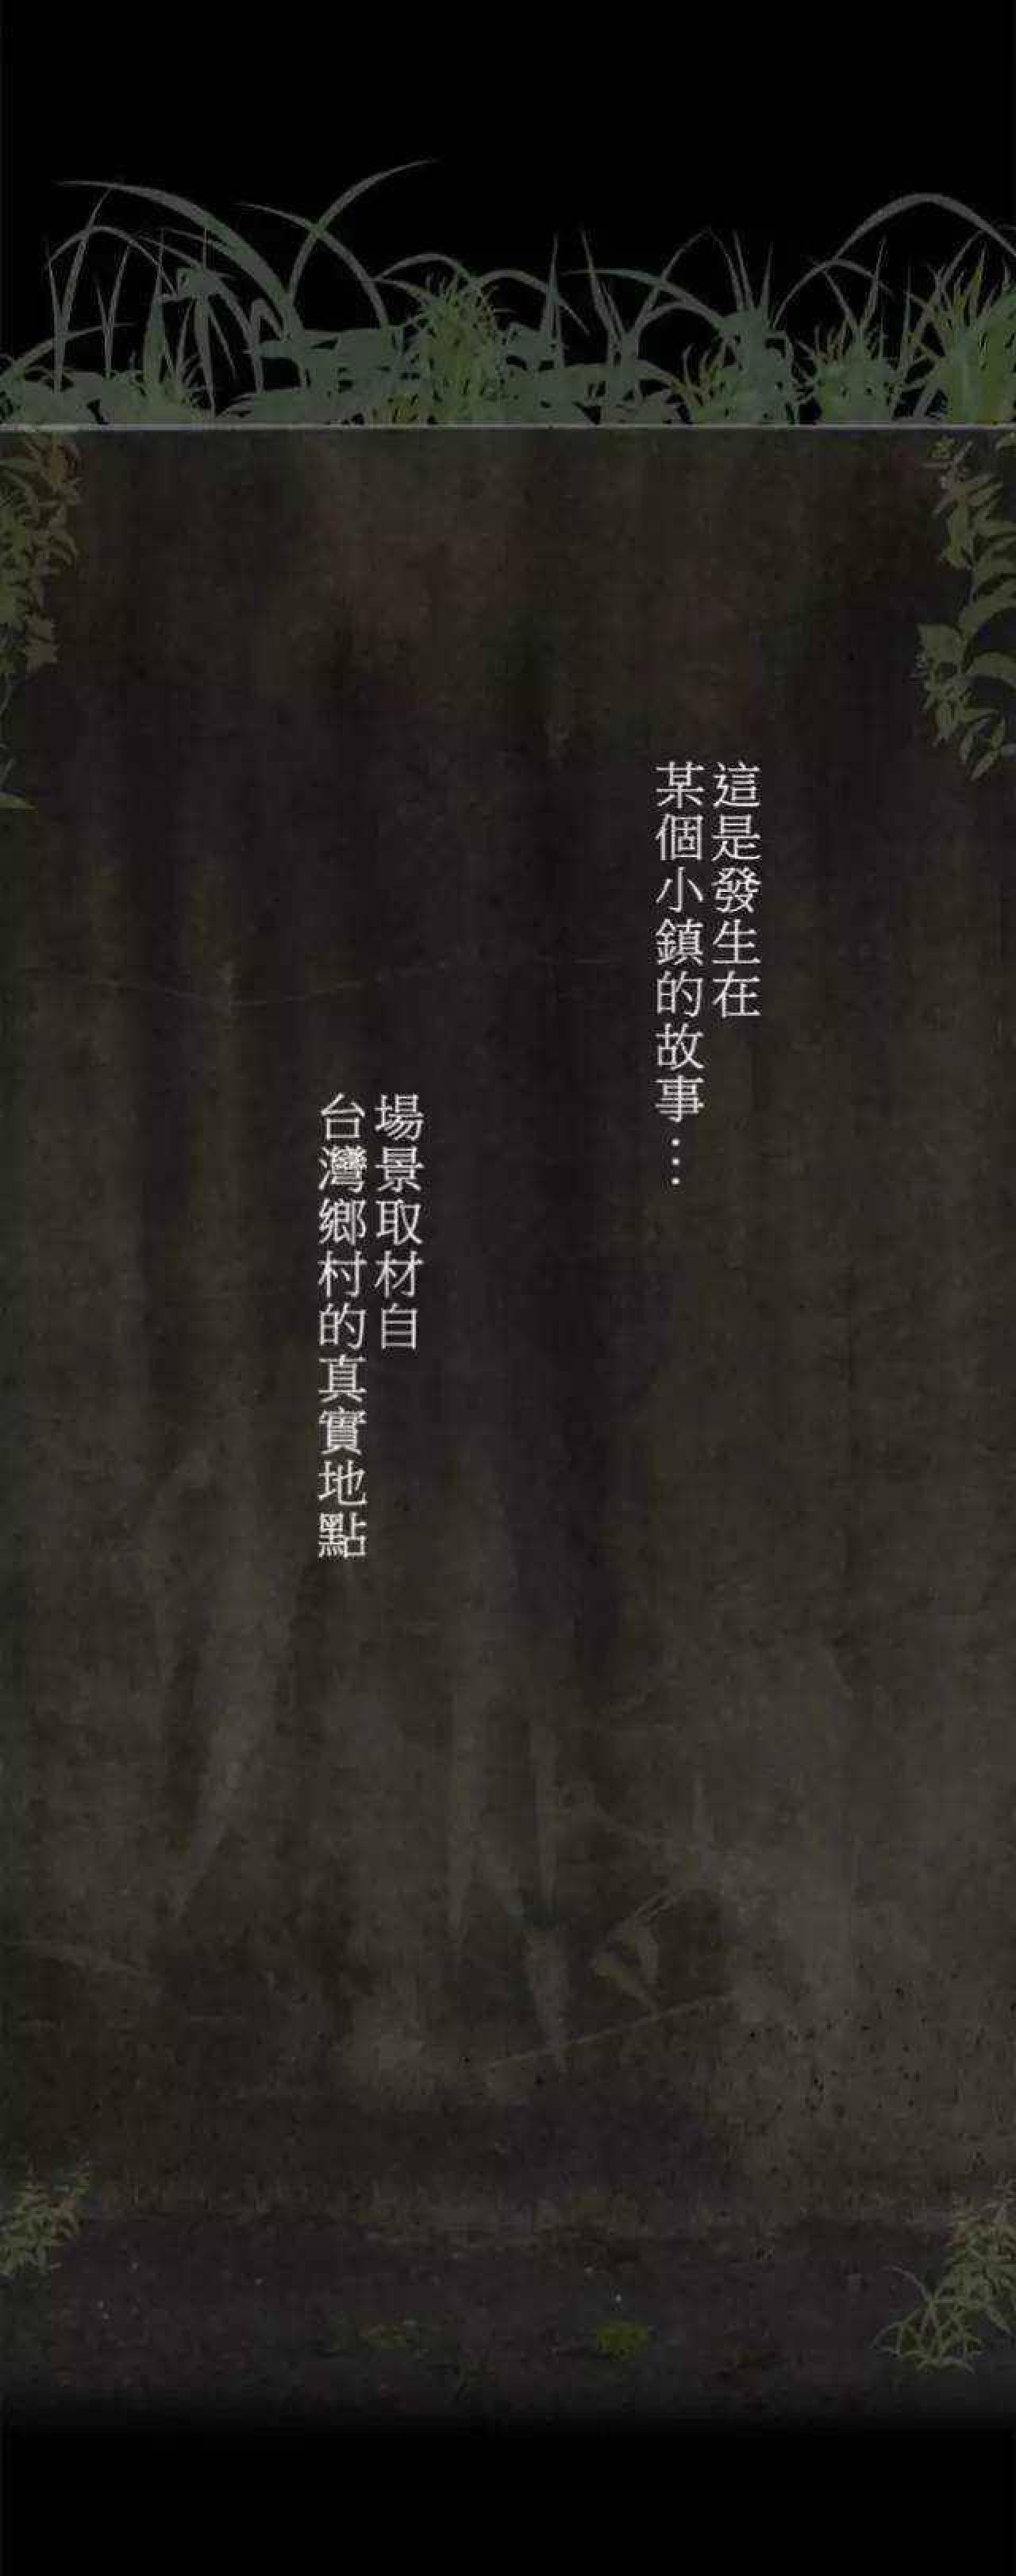 這是發生在
某個小鎮的故事…
場景取材自
台灣鄉村的真實地點